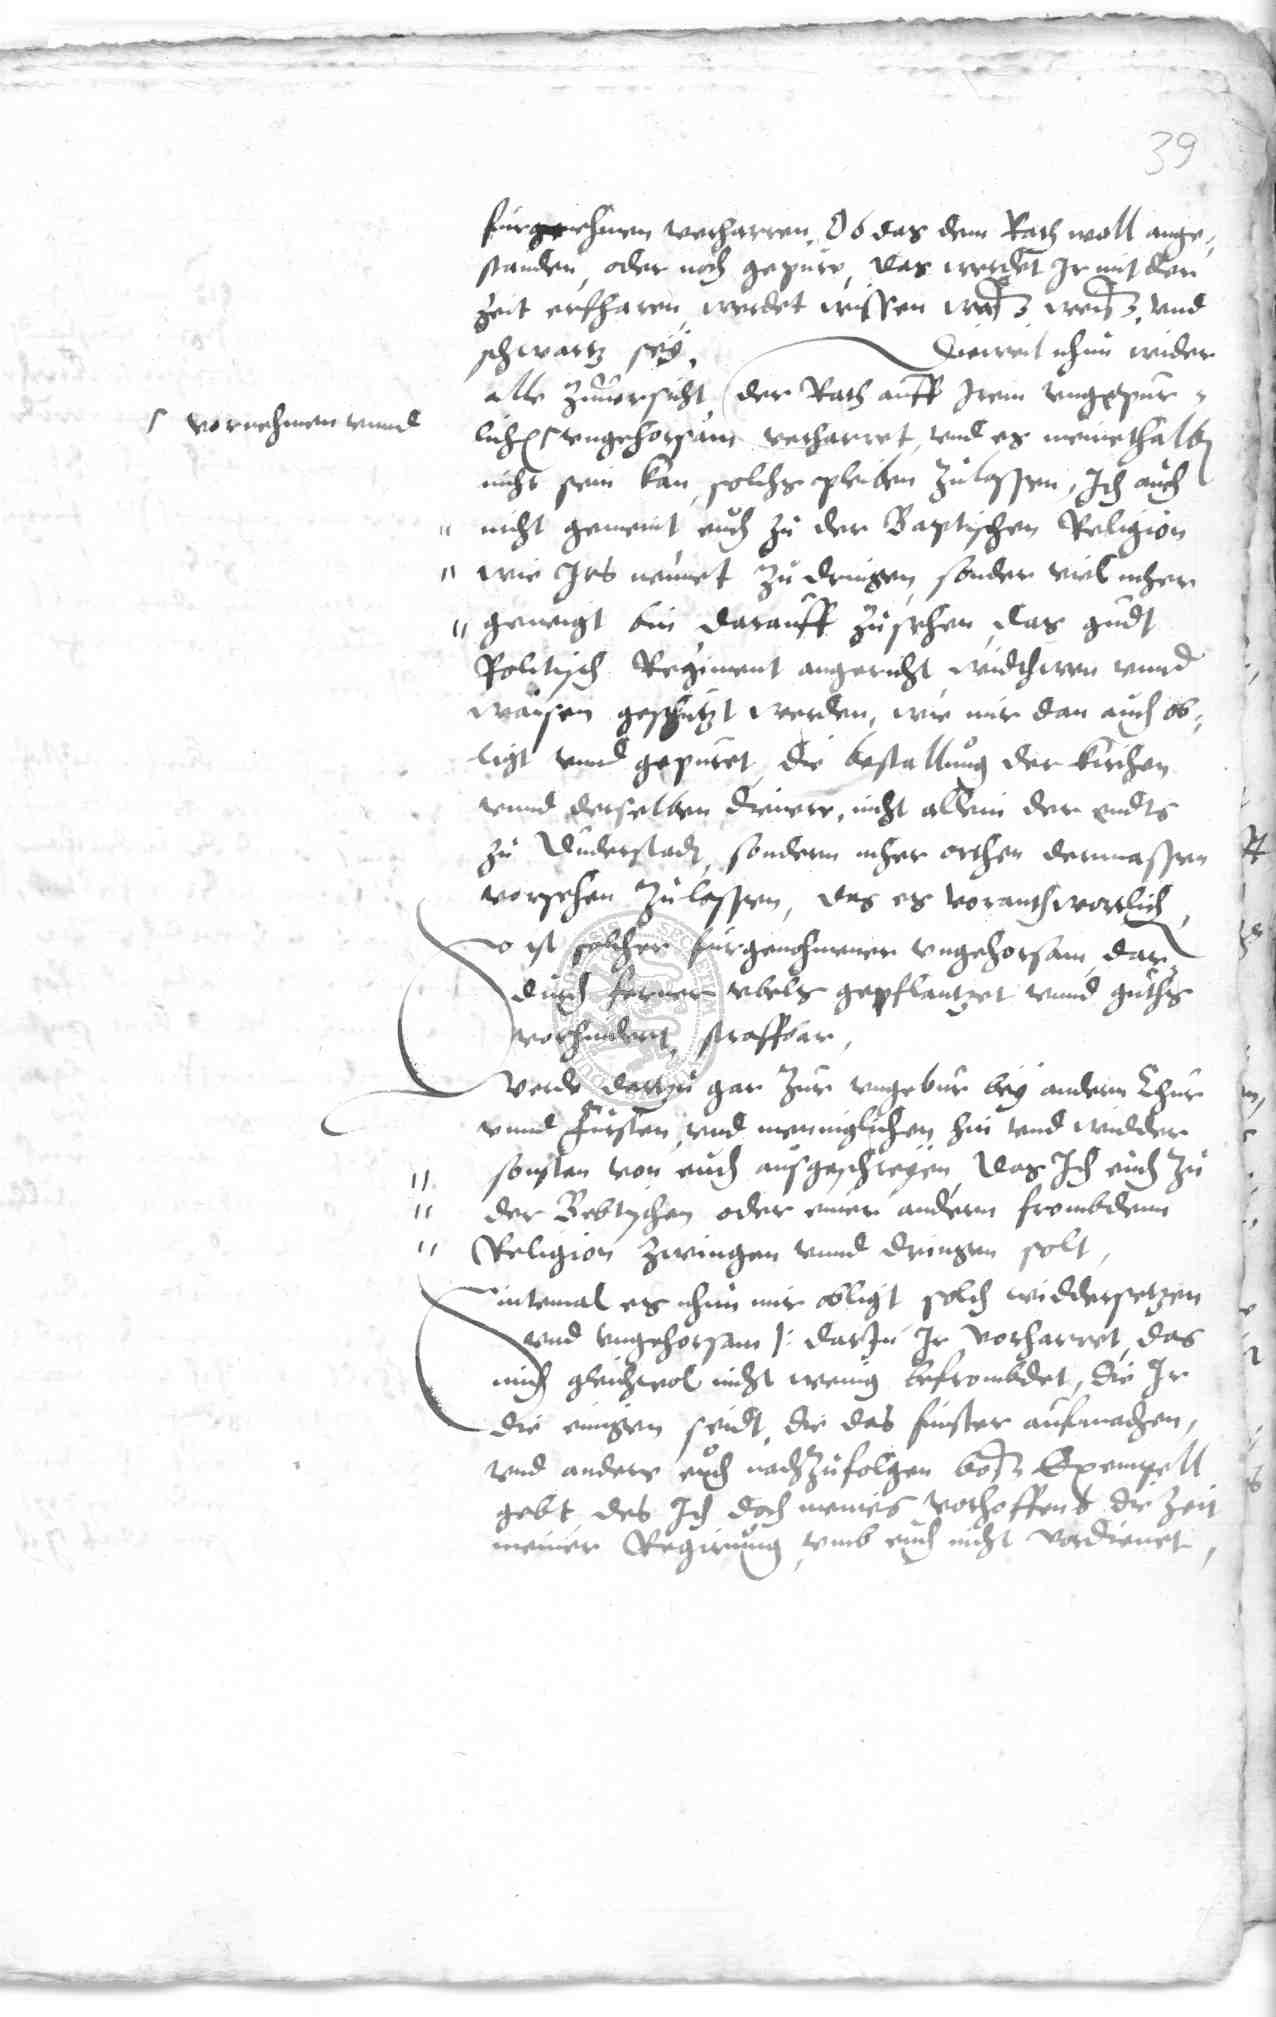 39
furgenehmen verharren. Ob das dem Rath woll ange,
standen, oder noch gepüre, das werdet Ir mit der
Zeit erfharen, werdet wissen was weis, vnd
schwartz sey. Dieweil nhun wider
alle Zuuorsicht, der Rath auff Irem vngepur,
vornehmen vnnd
lichen vngehorsam verharret, vnd es meinethalben
nicht sein kan, solchs pleiben Zulassen, Ich auch
" nicht gemeint euch zu der Baptischen Religion
" wie Irs nennet Zu dringen, sonder viel meher
" geneigt bin darauff Zusehen, das gudt
Politisch Regiment angericht, widthwen vnnd
waisen geschutzt werden, wie mir dan auch ob,
ligt vnnd gepüret, die bestallung der Kirchen
vnnd derselben dienere, nicht allein der endts
zu Duderstadt, sondern meher orthen dermassen
vorsehen Zulassen, das es voranthwortlich,
So ist solcher furgenohmener vngehorsam, dar
durch ferner vbels gepflantzet vnnd guths
vorhindert, straffbar,
Werde dartzu gar Zur vngebur bey andern Chur
vnnd Fürsten, vnd menniglichen hin vnd widder
" sonsten von euch ausgeschreyen, das Ich euch Zu
" der Bebtischen oder einer andern frombdenn
" Religion Zwingen vnnd dringen solt,
Sintemal es nhun mir obligt solch widdersetzen
vnd vngehorsam /: darIn Ir vorharret, das
mich gleichwol nicht wenig befrombdet, die Ir
die einigen seidt, die das finster aufmachen,
vnd andere euch nachZufolgen bos Exempell
gebt, des Ich doch meines vorhoffens die Zeit
meiner Regirung, vmb euch nicht vordienet,